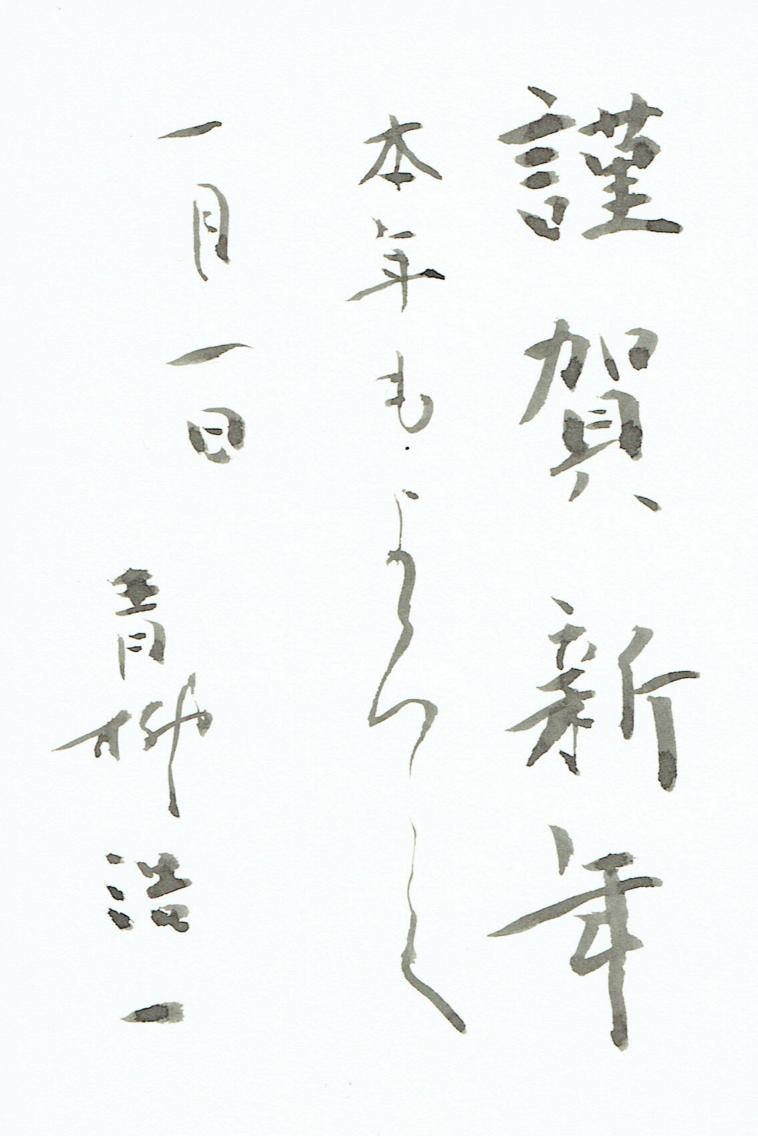 謹賀新年
本年もよろしく
一月一日
青柳浩一